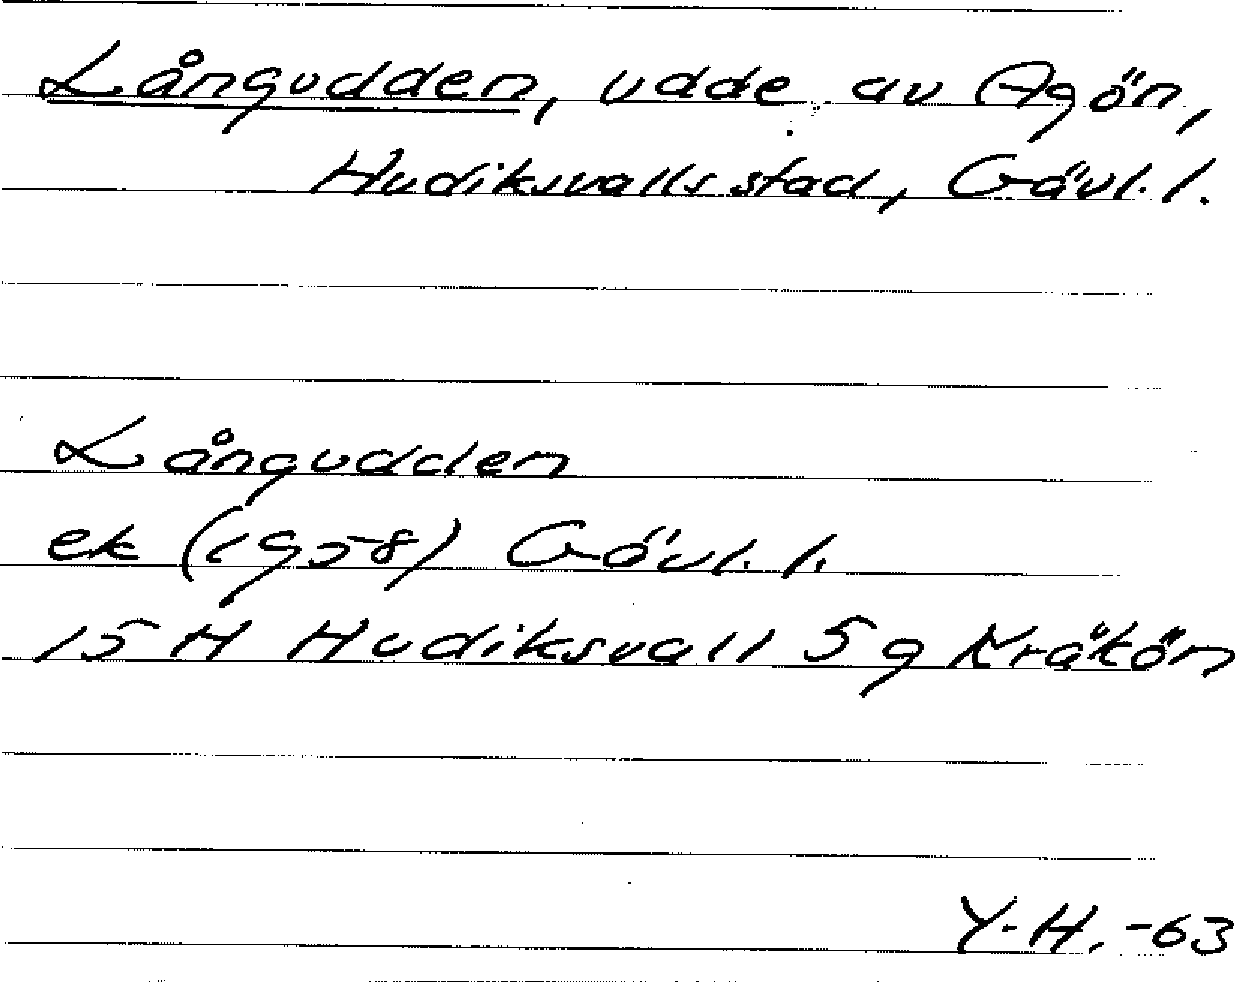 Långudden, udde av Agön,
Hudiksvalls stad, Gävl. l.
Långudden
ek (1958) Gävl. l.
15 H Hudiksvall 5 g Kråkön
Y.H. -63